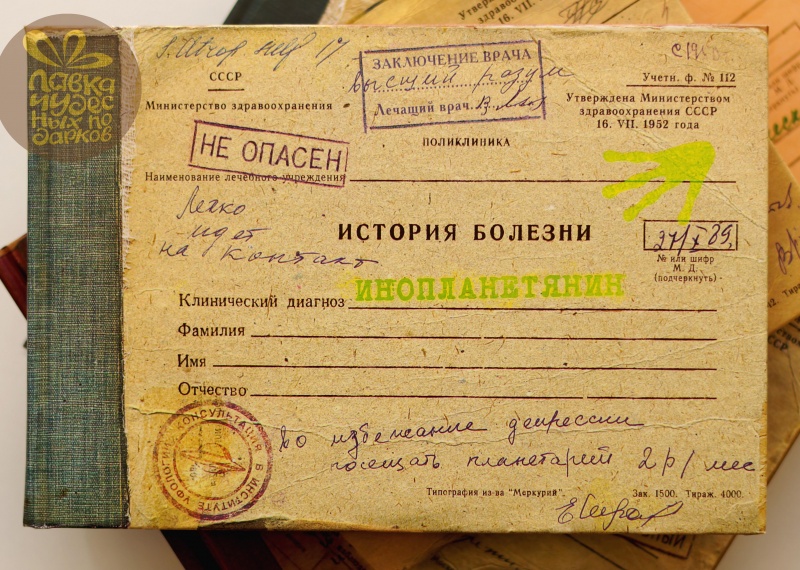 Лавка
чудес
ных по
дарков
СССР
Министерство здравоохранения
ЗАКЛЮЧЕНИЕ ВРАЧА
высший разум
Лечащий врач
Учетн. ф. № 112
Утверждена Министерством
здравоохранения СССР
16. VII. 1952 года
ПОЛИКЛИНИКА
НЕ ОПАСЕН
Наименование лечебного учреждения
Легко
идет
на контакт
ИСТОРИЯ БОЛЕЗНИ
27/X 89
№ или шифр
М. Д.
(подчеркнуть)
Клинический диагноз ИНОПЛАНЕТЯНИН
Фамилия
Имя
Отчество
КОНСУЛЬТАЦИЯ В ИНСТИТУТЕ УФОЛОГИИ
Во избежание депрессии
посещать планетарий 2 р/мес
Типография из-ва "Меркурий". Зак. 1500. Тираж. 4000.